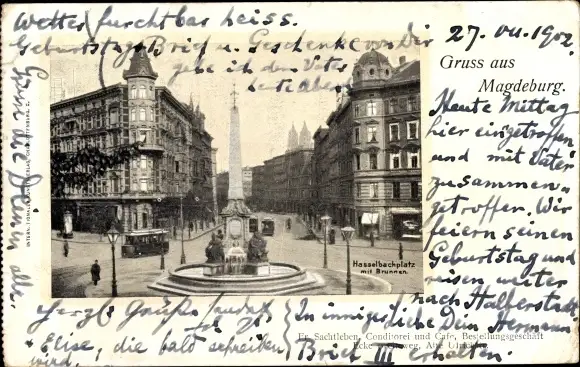 Wetter furchtbar heiss.
Geburtstags Brief u. Geschenke von Dir
gebe ich dem Vater
heute Abend
27. VII. 1902.
Gruss aus
Magdeburg.
Heute Mittag
hier eingetroffen
und mit Vater
zusammen-
getroffen. Wir
feiern seinen
Geburtstag und
reisen weiter
nach Halberstadt.
In inniger Liebe Dein Hermann
Brief III erhalten.
Hasselbachplatz
mit Brunnen.
Fr. Sachtleben, Conditorei und Cafe, Bestellungsgeschäft
Herzl. Grüsse
Elise, die bald schreiben
wird.
Grüsse die
alle,